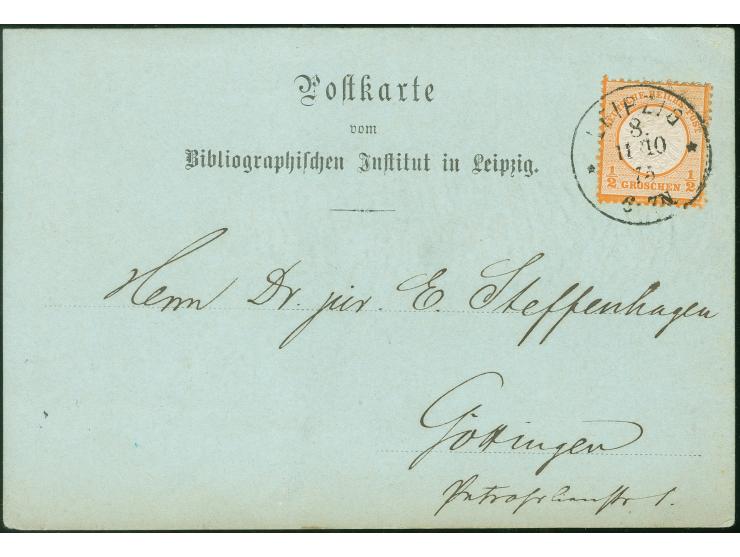 Postkarte
vom
Bibliographischen Institut in Leipzig.
LEIPZIG
8.
11 10
75
6-7N.
DEUTSCHE REICHS-POST
1/2 GROSCHEN 1/2
Herrn Dr. jur. E. Steffenhagen
Göttingen
1.